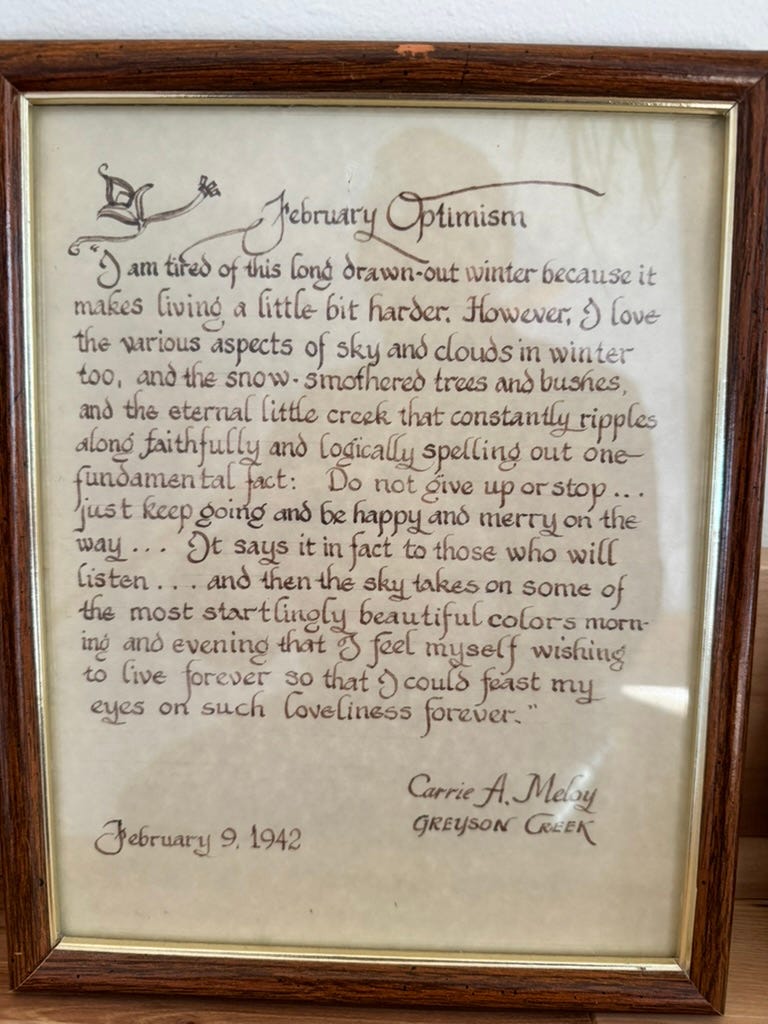 February Optimism
"I am tired of this long drawn-out winter because it
makes living a little bit harder. However, I love
the various aspects of sky and clouds in winter
too, and the snow-smothered trees and bushes,
and the eternal little creek that constantly ripples
along faithfully and logically spelling out one
fundamental fact: Do not give up or stop...
just keep going and be happy and merry on the
way... It says it in fact to those who will
listen... and then the sky takes on some of
the most startlingly beautiful colors morn-
ing and evening that I feel myself wishing
to live forever so that I could feast my
eyes on such loveliness forever."
Carrie A. Meloy
GREYSON CREEK
February 9, 1942